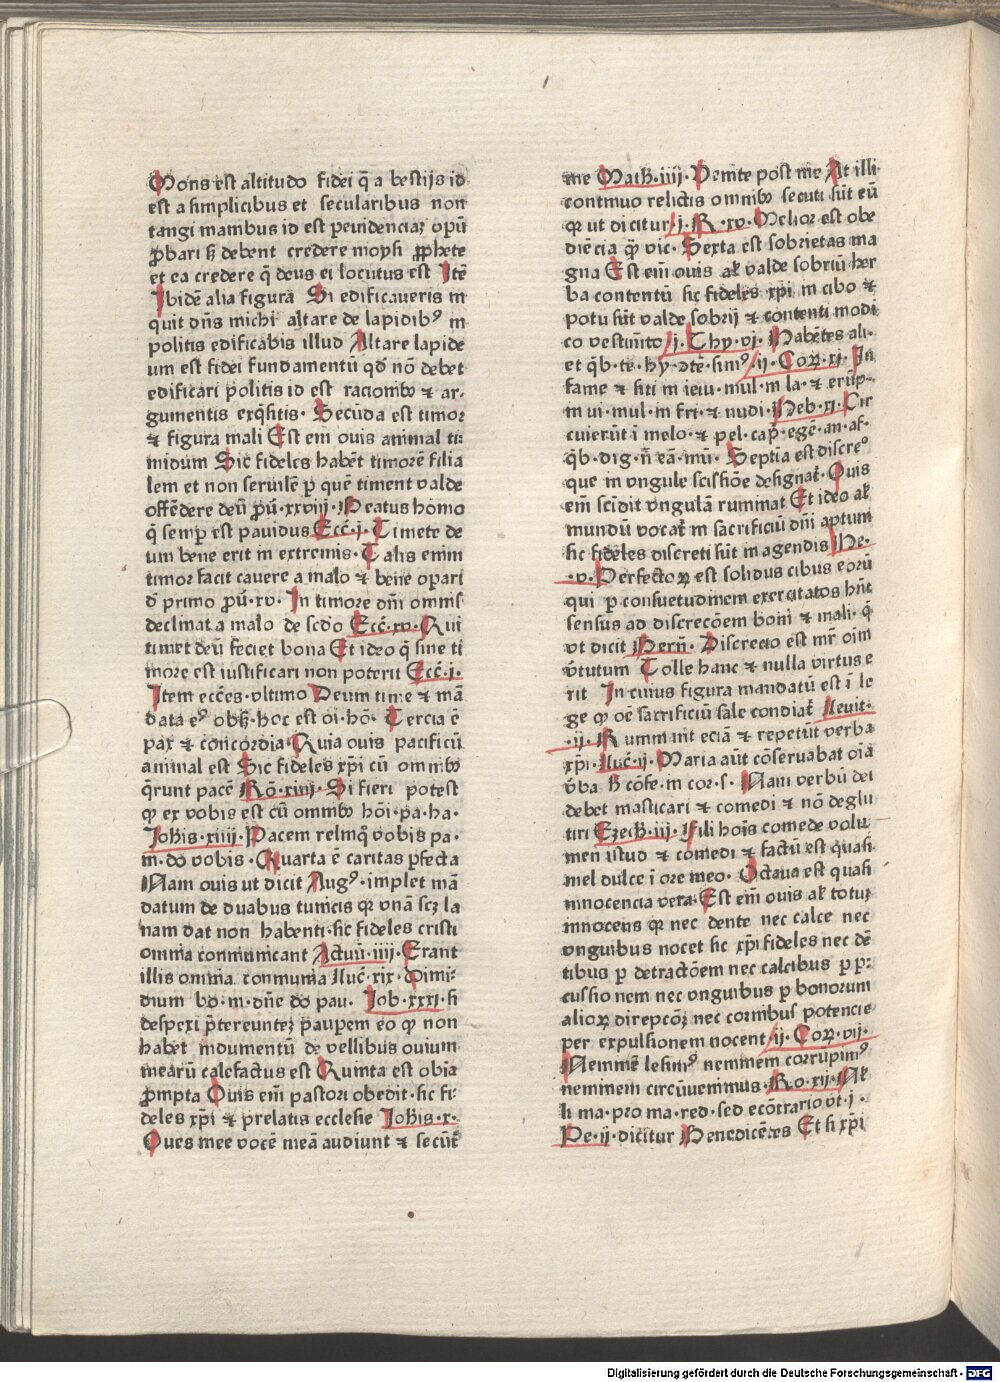 Mons est altitudo fidei q̄ a bestijs id
est a simplicibus et secularibus non
tangi manibus id est p euidenciaꝫ opū
ꝓbari sꝫ debent credere moysi ꝓphete
et ea credere q̄ deus ei locutus est Itē
Ibidē alia figura Si edificaueris in
quit dn̄s michi altare de lapidibꝰ in
politis edificabis illud Altare lapide
um est fidei fundamentū qd̄ nō debet
edificari politis id est racionibꝰ ⁊ ar⸗
gumentis exq̄sitis. Secūda est timor
⁊ figura mali Est em̄ ouis animal ti⸗
midum Sic fideles habēt timorē filia
lem et non seruilē p quē timent valde
offēdere deū ꝓū.xxviij. Beatus homo
q̄ semꝑ est pauidus Ecc̄.j. Timete de
um bene erit in extremis. Talis enim
timor facit cauere a malo ⁊ bene oꝑari
d̄ primo ꝓū.xv. In timore dn̄i omnis
declinat a malo de scd̄o Ecc̄.xv. Qui
timet deū faciet bona Et ideo q̄ sine ti
more est iustificari non poterit Ecc̄.j.
Item ecc̄es. vltimo Deum time ⁊ mā
data eꝰ obẞ. hoc est oī hō. Tercia ē
pax ⁊ concordia. Quia ouis pacificū
animal est Sic fideles xp̄i cū omnibꝰ
q̄runt pacē Ro.xiiij. Si fieri potest
qꝫ ex vobis est cū omnibꝰ hōi.pa.ha.
Johis.xiiij. Pacem relinq̄ vobis pa.
m.do vobis. Quarta ē caritas ꝑfecta
Nam ouis ut dicit Augꝰ. implet mā
datum de duabus tunicis qꝛ vnā scꝫ la
nam dat non habenti. sic fideles cristi
omnia conmunicant Actuū.iiij. Erant
illis omnia conmunia Luc̄.xix. Dimi⸗
dium bo.m.dn̄e do pau. Job.xxxj. si
despexi p̄tereunteꝫ ꝑauꝑem eo qꝫ non
habet indumentū de velleribus ouium
meārū calefactus est Quinta est obīa
ꝓmpta Ouis em̄ pastori obedit. sic fi⸗
deles xp̄i ⁊ prelatis ecclesie Johis.x.
Oues mee vocē meā audiunt ⁊ secūt̄
me Math.iiij. Venite post me At illi
continuo relictis omnibꝰ secuti sūt eū
qꝛ ut dicitur j.R.xv. Melior est obe
diēcia q̄ꝫ vic. Sexta est sobrietas ma
gna Est em̄ ouis al̄ valde sobriū her
ba contentū sic fideles xp̄i in cibo ⁊
potu sūt valde sobrij ⁊ contenti modi
co vestim̄to j.Thy.vj. Habētes ali.
et q̄b.te.hy.ꝯtē.simꝰ. ij.Coꝝ.xj. In
fame ⁊ siti in ieiu.mul.in la.⁊ erūp⸗
in ui.mul.in fri.⁊ nudi. Heb.xj. Cir
cuierūt ī melo.⁊ pel.cap̄.egē.an.af.
q̄b.dig.n̄ eā.mū. Septia est discreꝰ
que in vngule scissiōe designat̄. Ouis
em̄ scidit vngulā ruminat Et ideo al̄
mundū vocat̄ in sacrificiū dn̄i aptum
sic fideles discreti sūt in agendis He.
.v. Perfectoꝝ est solidus cibus eorū
qui p consuetudinem exercitatos hn̄t
sensus ad discrecōem boni ⁊ mali. q̄
vt dicit Bern̄. Discrecio est mr̄ oīm
v̄tutum Tolle hanc ⁊ nulla virtus e
rit In cuius figura mandatū est ī le
ge qꝫ oē sacrificiū sale condiat̄ Leuit.
.ij. Ruminant eciā ⁊ repetūt verba
xp̄i. Luc̄.ij. Maria aūt cōseruabat oīa
v̄ba h̄ cōfe.in cor.s. Nam verbū dei
debet masticari ⁊ comedi ⁊ nō deglu
tiri Ezech.iij. Fili hoīs comede volu
men istud ⁊ comedi ⁊ factū est quasi
mel dulce ī ore meo. Octaua est quasi
innocencia vera. Est em̄ ouis al̄ totuꝫ
innocens qꝛ nec dente nec calce nec
vnguibus nocet sic xp̄i fideles nec dē
tibus p detractōem nec calcibus p ꝑ⸗
cussionem nec vnguibus p bonorum
alioꝝ direpcōꝫ nec cornibus potencie
per expulsionem nocent. ij.Coꝝ.vij.
Neminē lesimꝰ neminem corrupimꝰ
neminem circūuenimus. Ro.xij. Nl̄
li ma.pro ma.red.sed ecōtrario vt.j.
Pe.ij. dicitur Benedicētes Et si xp̄i
Digitalisierung gefördert durch die Deutsche Forschungsgemeinschaft - DFG